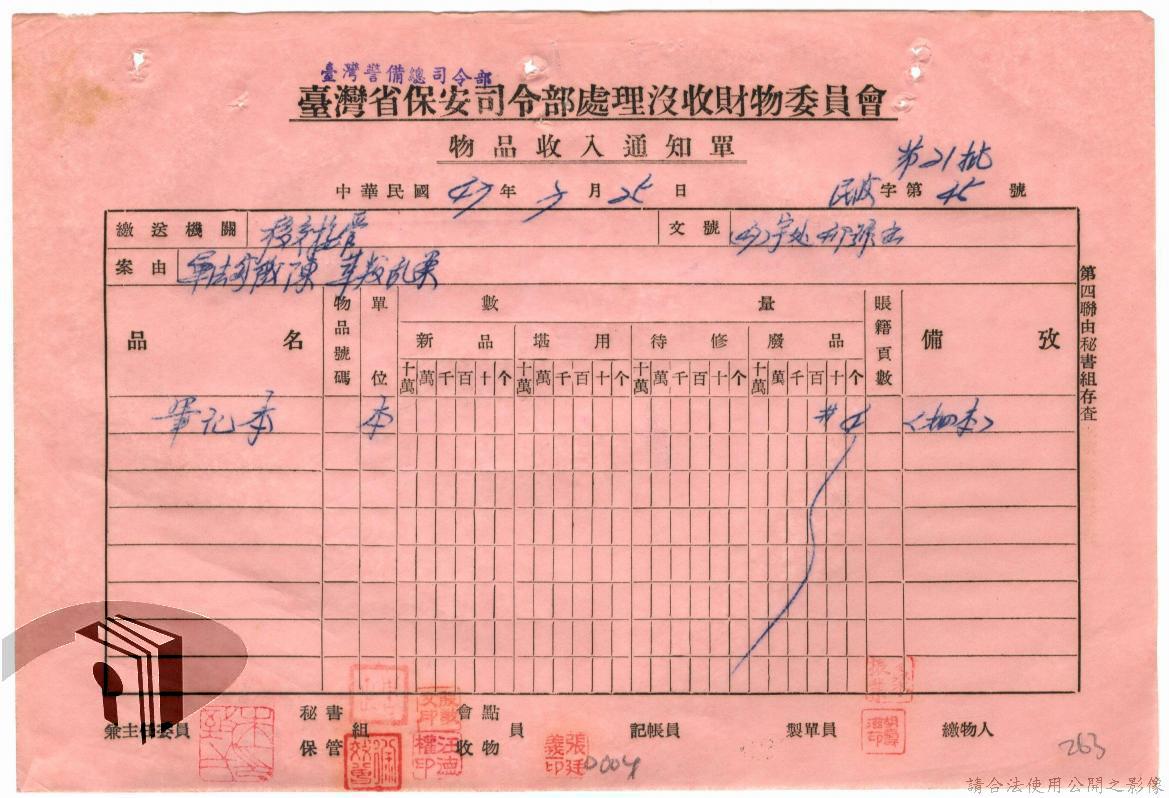 臺灣警備總司令部
臺灣省保安司令部處理沒收財物委員會
物品收入通知單
第21批
中華民國 47 年 月 25 日
字第 45 號
繳送機關 移交接管
文號
案由 陳 叛亂案
品名 物品號碼 單位 數量 賬籍頁數 備攷
新品 堪用 待修 廢品
十萬 萬 千 百 十 个 十萬 萬 千 百 十 个 十萬 萬 千 百 十 个 十萬 萬 千 百 十 个
筆記本 本 #4 <四本>
第四聯由秘書組存查
兼主任委員 秘書組 保管 會點收物員 記帳員 製單員 繳物人
張廷義印
汪德權印
0004
263
請合法使用公開之影像